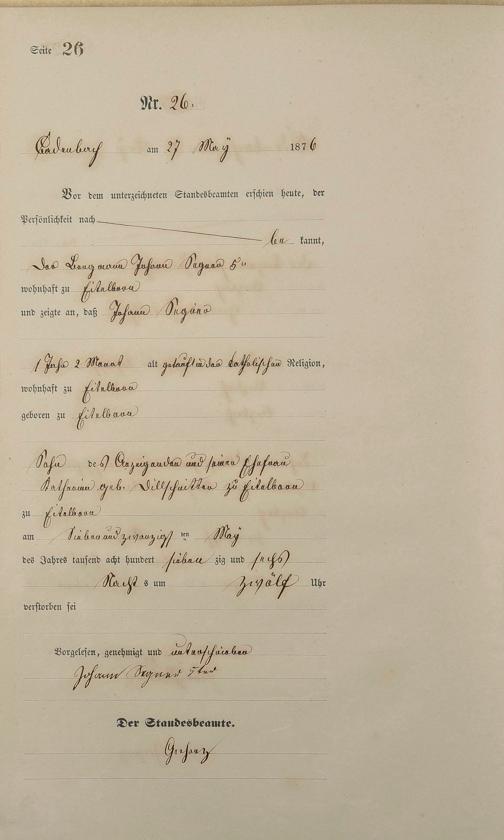 Seite 26
Nr. 26.
Cadenbach am 27 Maÿ 1876
Vor dem unterzeichneten Standesbeamten erschien heute, der
Persönlichkeit nach
be kannt,
der Bergmann Johann Segner 5r
wohnhaft zu Eitelborn
und zeigte an, daß Johann Segner
1 Jahr 2 Monat alt getauft in der katholischen Religion,
wohnhaft zu Eitelborn
geboren zu Eitelborn
Sohn des Anzeigenden und seiner Ehefrau
Katharina geb. Dillschnitter zu Eitelborn
zu Eitelborn
am Siebenundzwanzigst en Maÿ
des Jahres tausend acht hundert sieben zig und sechs
Nacht s um zwölf Uhr
verstorben sei
Vorgelesen, genehmigt und unterschrieben
Johann Segner 5ter
Der Standesbeamte.